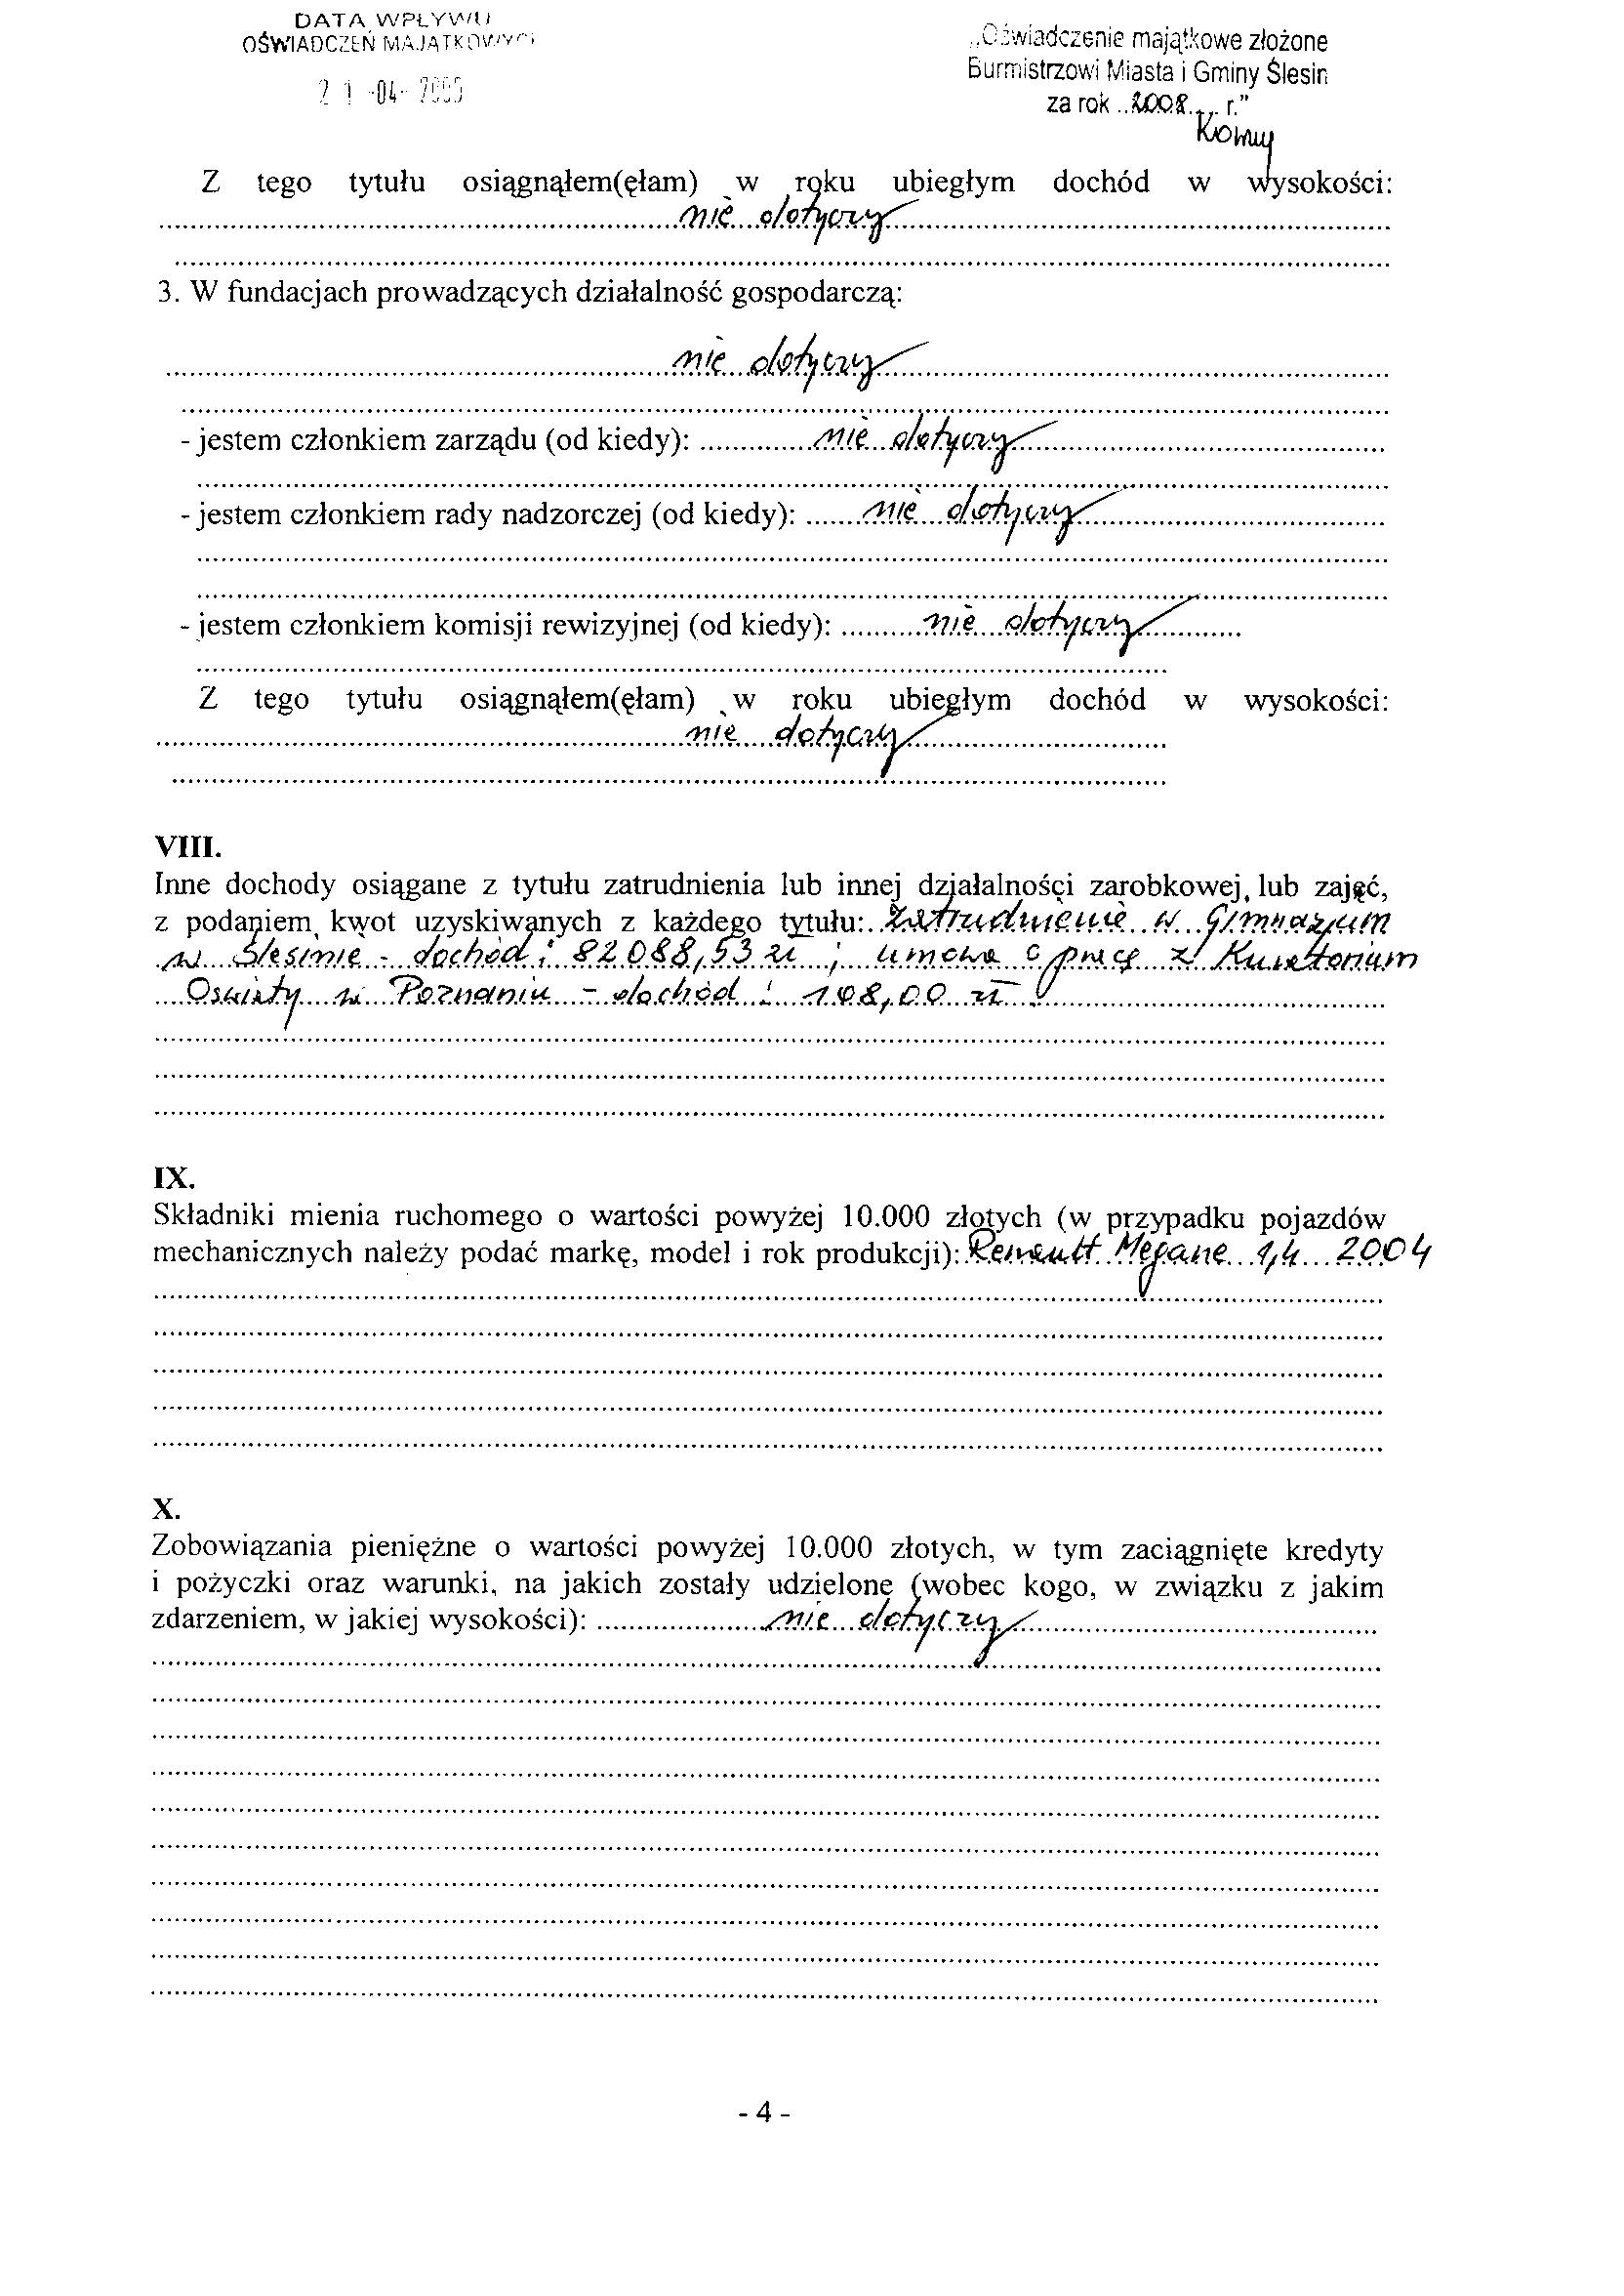 DATA WPŁYWU
OŚWIADCZEŃ MAJĄTKOWYCH
21 -04- 2009
„Oświadczenie majątkowe złożone
Burmistrzowi Miasta i Gminy Ślesin
za rok ..2008.... r."
Z tego tytułu osiągnąłem(ęłam) w roku ubiegłym dochód w wysokości:
nie dotyczy
3. W fundacjach prowadzących działalność gospodarczą:
nie dotyczy
- jestem członkiem zarządu (od kiedy): nie dotyczy
- jestem członkiem rady nadzorczej (od kiedy): nie dotyczy
- jestem członkiem komisji rewizyjnej (od kiedy): nie dotyczy
Z tego tytułu osiągnąłem(ęłam) w roku ubiegłym dochód w wysokości:
nie dotyczy
VIII.
Inne dochody osiągane z tytułu zatrudnienia lub innej działalności zarobkowej, lub zajęć,
z podaniem, kwot uzyskiwanych z każdego tytułu: Zatrudnienie w Gimnazjum
w Ślesinie - dochód : 82088,53 zł ; umowa o pracę z Kuratorium
Oświaty w Poznaniu - dochód : 108,00 zł.
IX.
Składniki mienia ruchomego o wartości powyżej 10.000 złotych (w przypadku pojazdów
mechanicznych należy podać markę, model i rok produkcji): Renault Megane 1,4 2004
X.
Zobowiązania pieniężne o wartości powyżej 10.000 złotych, w tym zaciągnięte kredyty
i pożyczki oraz warunki, na jakich zostały udzielone (wobec kogo, w związku z jakim
zdarzeniem, w jakiej wysokości): nie dotyczy
- 4 -